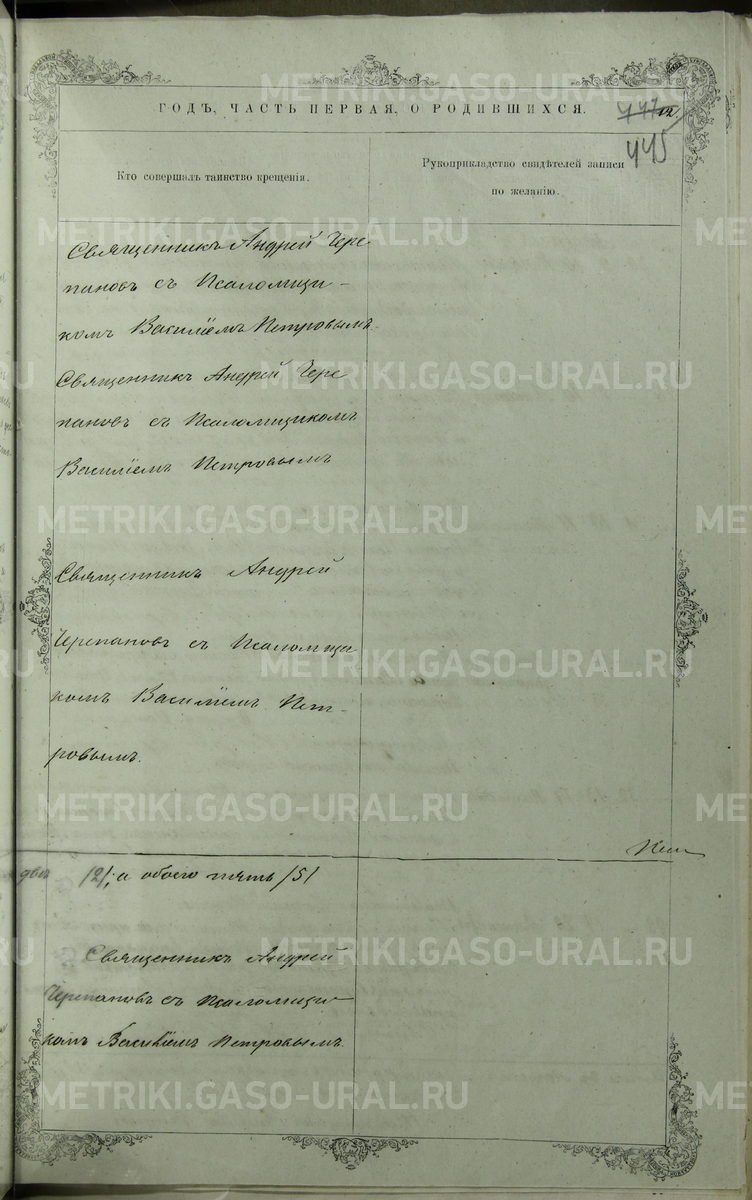 ГОДЪ, ЧАСТЬ ПЕРВАЯ, О РОДИВШИХСЯ.
447 12.
445
Кто совершалъ таинство крещенія.
Рукоприкладство свидѣтелей записи
по желанію.
Священникъ Андрей Чере
пановъ съ Псаломщи-
комъ Василіемъ Петровымъ.
Священникъ Андрей Чере
пановъ съ Псаломщикомъ
Василіемъ Петровымъ
Священникъ Андрей
Черепановъ съ Псаломщи
комъ Василіемъ Пет-
ровымъ.
два /2/, а обоего пять /5/
Священникъ Андрей
Черепановъ съ Псаломщи-
комъ Василіемъ Петровымъ.
METRIKI.GASO-URAL.RU